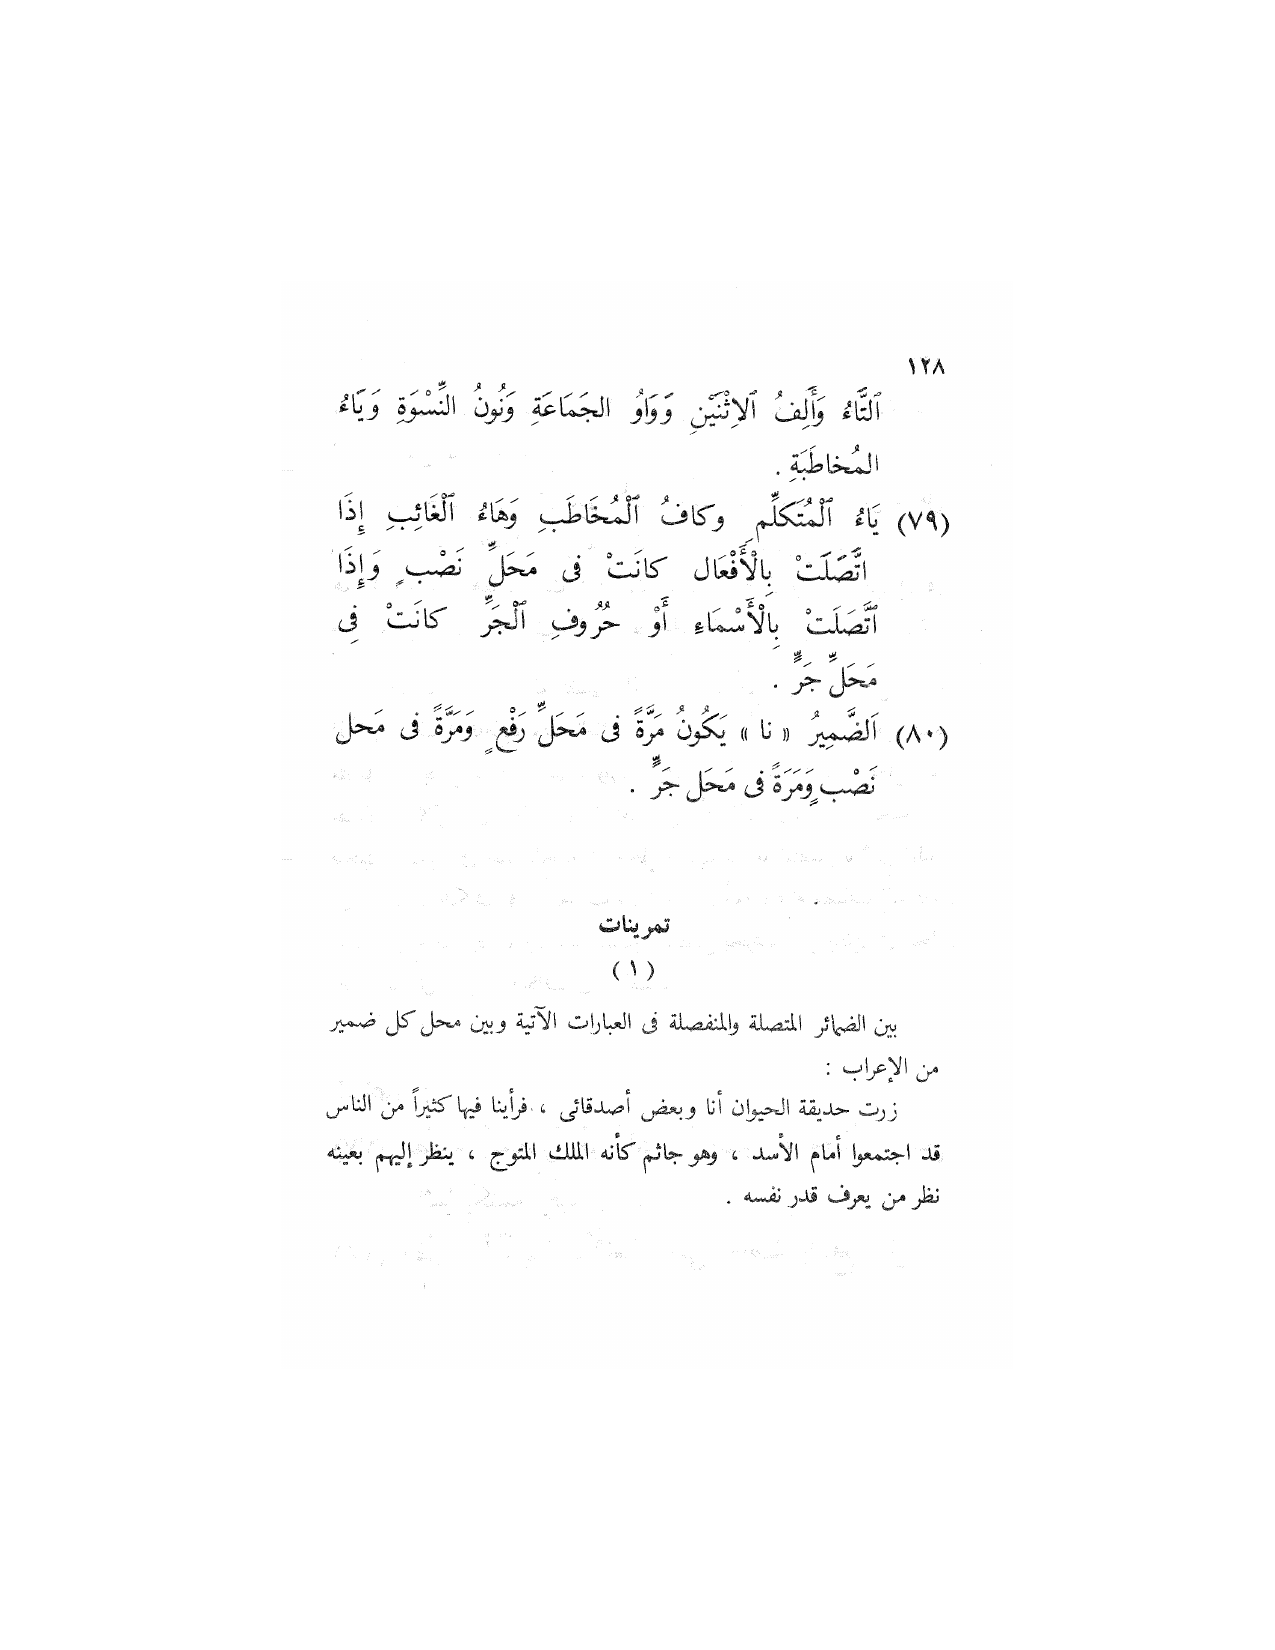 ١٢٨
اَلتَّاءُ وَأَلِفُ الاِثْنَيْنِ وَوَاوُ الجَمَاعَةِ وَنُونُ النِّسْوَةِ وَيَاءُ
المُخاطَبَةِ .
(٧٩) يَاءُ اَلْمُتَكَلِّمِ وكافُ اَلْمُخَاطَبِ وَهَاءُ اَلْغَائِبِ إِذَا
اتَّصَلَتْ بِالْأَفْعَال كانَتْ فى مَحَلِّ نَصْبٍ وَإِذَا
اَتَّصَلَتْ بِالْأَسْمَاءِ أَوْ حُرُوفِ اَلْجَرِّ كانَتْ فِى
مَحَلِّ جَرٍّ .
(٨٠) اَلضَّمِيرُ « نا » يَكُونُ مَرَّةً فى مَحَلِّ رَفْعٍ وَمَرَّةً فى مَحل
نَصْبٍ وَمَرَةً فى مَحَل جَرٍّ .
تمرينات
( ١ )
بين الضمائر المتصلة والمنفصلة فى العبارات الآتية وبين محل كل ضمير
من الإعراب :
زرت حديقة الحيوان أنا وبعض أصدقائى ، فرأينا فيها كثيراً من الناس
قد اجتمعوا أمام الأسد ، وهو جاثم كأنه الملك المتوج ، ينظر إليهم بعينه
نظر من يعرف قدر نفسه .